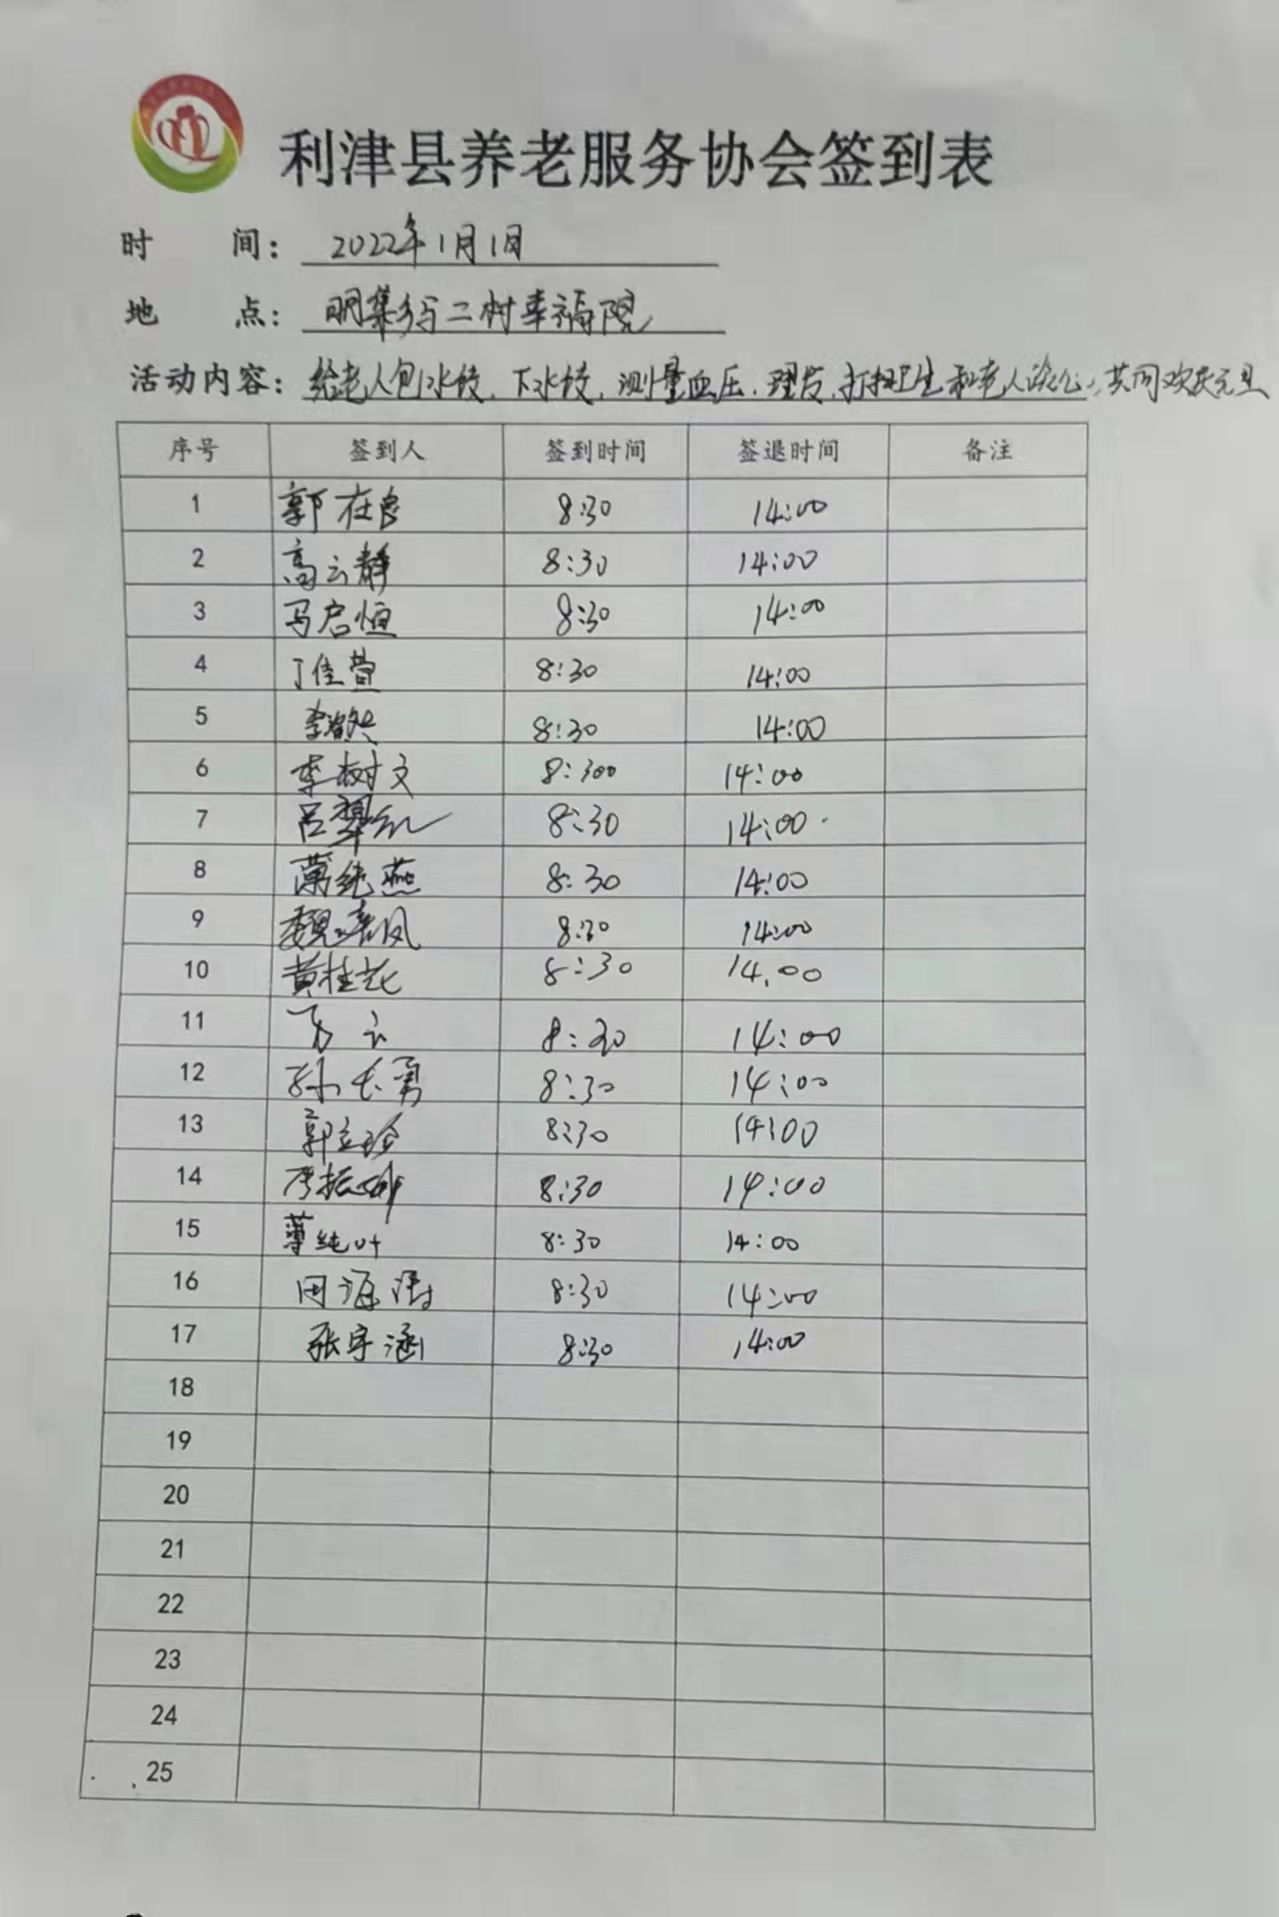 利津县养老服务协会签到表
时 间: 2022年1月1日
地 点: 明集乡与二村幸福院
活动内容: 给老人包水饺、下水饺、测量血压、理发、打扫卫生和老人谈心,共同欢庆元旦
序号 签到人 签到时间 签退时间 备注
1 郭在良 8:30 14:00
2 高云静 8:30 14:00
3 马启恒 8:30 14:00
4 丁佳萱 8:30 14:00
5 李 8:30 14:00
6 李树文 8:300 14:00
7 吕翠红 8:30 14:00
8 薄纯燕 8:30 14:00
9 魏春凤 8:30 14:00
10 黄桂花 8:30 14.00
11 8:30 14:00
12 孙长勇 8:30 14:00
13 郭立珍 8:30 14:00
14 8:30 14:00
15 薄纯叶 8:30 14:00
16 田海涛 8:30 14:00
17 张宇涵 8:30 14:00
18
19
20
21
22
23
24
25